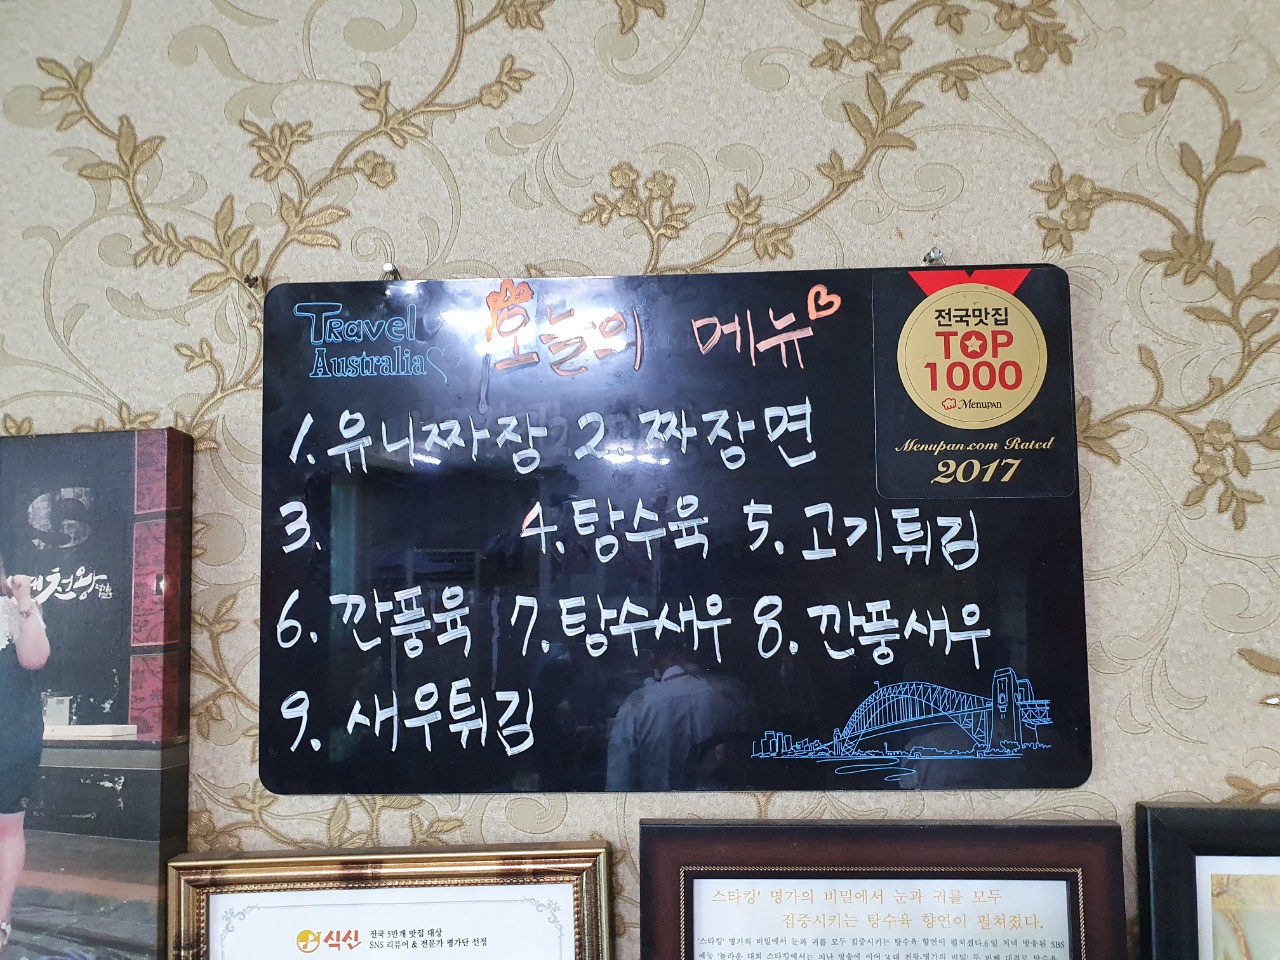 Travel
Australia
오늘의 메뉴
전국맛집
TOP
1000
Menupan
Menupan.com Rated
2017
1. 유니짜장 2. 짜장면
3. 4. 탕수육 5. 고기튀김
6. 깐풍육 7. 탕수새우 8. 깐풍새우
9. 새우튀김
S
천왕
식신
전국 5만개 맛집 대상
SNS 리뷰어 & 전문가 평가단 선정
스타킹' 명가의 비밀에서 눈과 귀를 모두
집중시키는 탕수육 향연이 펼쳐졌다.
'스타킹' 명가의 비밀에서 눈과 귀를 모두 집중시키는 탕수육 향연이 펼쳐졌다.6일 저녁 방송된 SBS